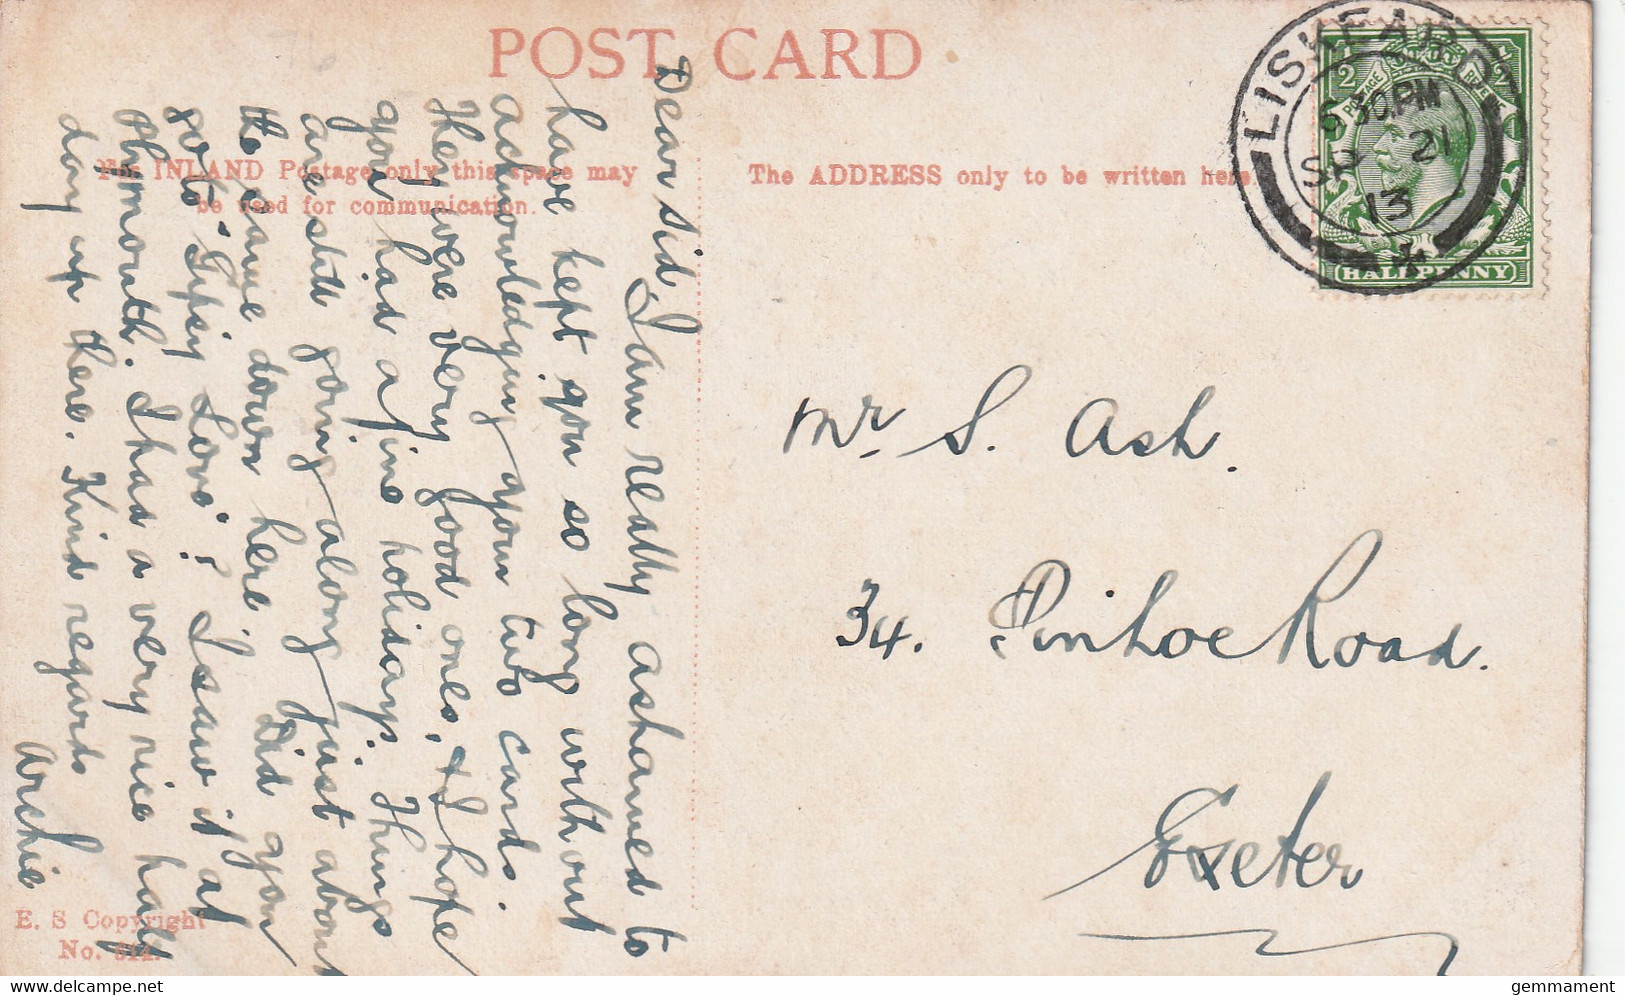 POST CARD
For INLAND Postage only this space may
be used for communication.
The ADDRESS only to be written here.
LISKEARD
6 30 PM
SP 21
13
POSTAGE REVENUE
1/2 1/2
HALFPENNY
Dear Sid, I am really ashamed to
have kept you so long without
acknowledging your two cards.
They were very good ones, & I hope
you had a fine holiday. Things
are still going along just about
the same down here. Did you
go to "Gipsy Love"? I saw it at
Plymouth. I had a very nice half
day up there. Kind regards
Archie
Mr S. Ash.
34. Pinhoe Road.
Exeter
E. S Copyright
No.
gemmament